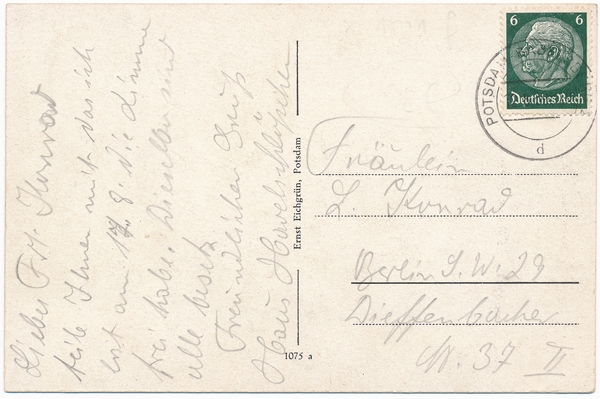 Liebes Frl. Konrad
teile Ihnen mit das ich
erst am 17. 8. die Zimmer
frei habe. Dieselben sind
alle besetzt
Freundlichen Gruß
Hans
Ernst Eichgrün, Potsdam
1075 a
6 6
Deutsches Reich
POTSDA
d
Fräulein
L. Konrad
Berlin S.W. 29
Dieffenbacher
Nr. 37 II